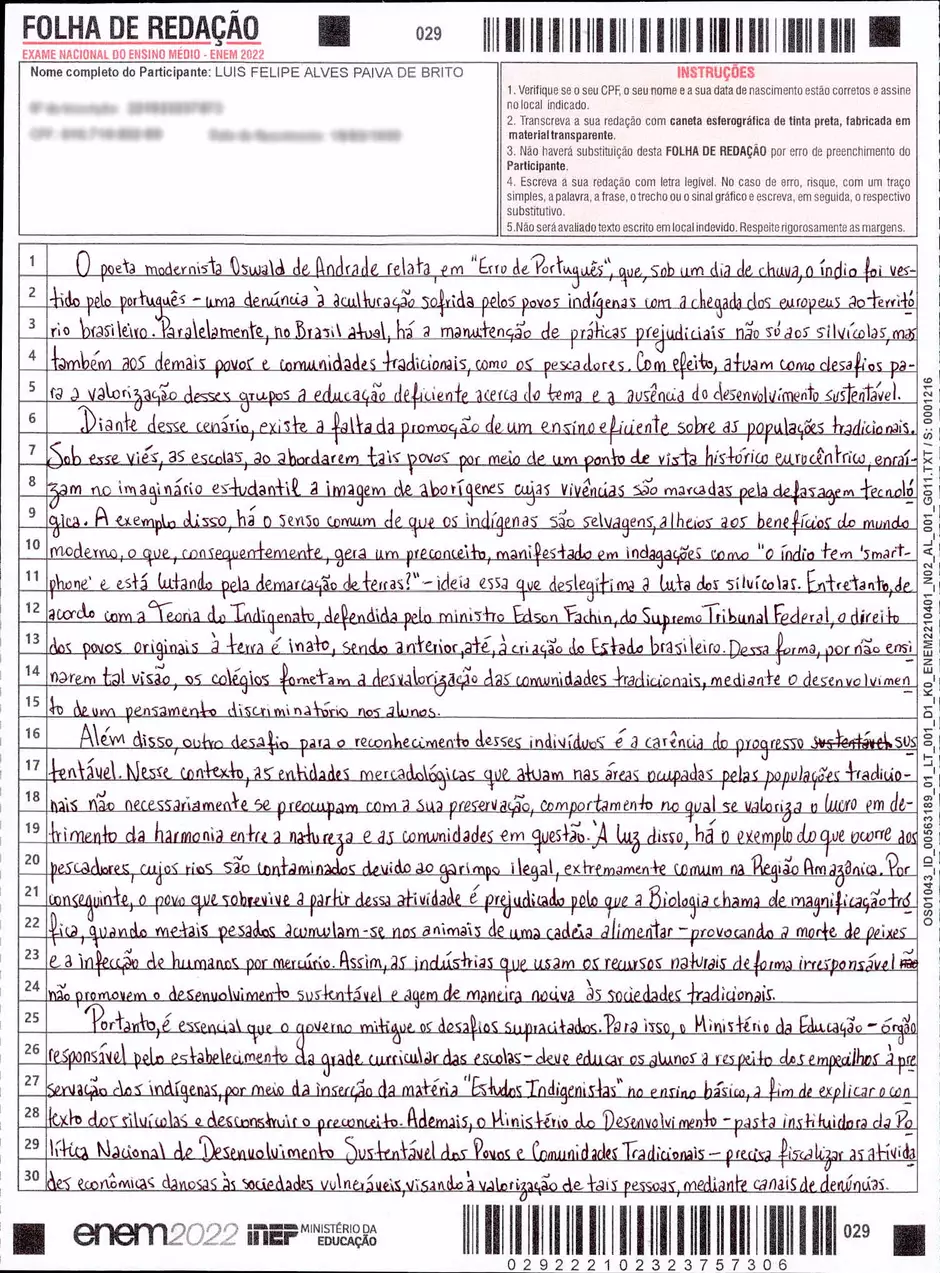 FOLHA DE REDAÇÃO
029
EXAME NACIONAL DO ENSINO MÉDIO - ENEM 2022
Nome completo do Participante: LUIS FELIPE ALVES PAIVA DE BRITO
INSTRUÇÕES
1. Verifique se o seu CPF, o seu nome e a sua data de nascimento estão corretos e assine
no local indicado.
2. Transcreva a sua redação com caneta esferográfica de tinta preta, fabricada em
material transparente.
3. Não haverá substituição desta FOLHA DE REDAÇÃO por erro de preenchimento do
Participante.
4. Escreva a sua redação com letra legível. No caso de erro, risque, com um traço
simples, a palavra, a frase, o trecho ou o sinal gráfico e escreva, em seguida, o respectivo
substitutivo.
5.Não será avaliado texto escrito em local indevido. Respeite rigorosamente as margens.
1 O poeta modernista Oswald de Andrade relata, em "Erro de Português", que, sob um dia de chuva, o índio foi ves-
2 tido pelo português – uma denúncia à aculturação sofrida pelos povos indígenas com a chegada dos europeus ao territó
3 rio brasileiro. Paralelamente, no Brasil atual, há a manutenção de práticas prejudiciais não só aos silvícolas, mas
4 também aos demais povos e comunidades tradicionais, como os pescadores. Com efeito, atuam como desafios pa-
5 ra a valorização desses grupos a educação deficiente acerca do tema e a ausência do desenvolvimento sustentável.
6 Diante desse cenário, existe a falta da promoção de um ensino eficiente sobre as populações tradicionais.
7 Sob esse viés, as escolas, ao abordarem tais povos por meio de um ponto de vista histórico eurocêntrico, enraí-
8 zam no imaginário estudantil a imagem de aborígenes cujas vivências são marcadas pela defasagem tecnoló
9 gica. A exemplo disso, há o senso comum de que os indígenas são selvagens, alheios aos benefícios do mundo
10 moderno, o que, consequentemente, gera um preconceito, manifestado em indagações como "o índio tem 'smart-
11 phone' e está lutando pela demarcação de terras?" – ideia essa que deslegitima a luta dos silvícolas. Entretanto, de
12 acordo com a Teoria do Indigenato, defendida pelo ministro Edson Fachin, do Supremo Tribunal Federal, o direito
13 dos povos originais à terra é inato, sendo anterior, até, à criação do Estado brasileiro. Dessa forma, por não ensi
14 narem tal visão, os colégios fometam a desvalorização das comunidades tradicionais, mediante o desenvolvimen
15 to de um pensamento discriminatório nos alunos.
16 Além disso, outro desafio para o reconhecimento desses indivíduos é a carência do progresso sustentável sus
17 tentável. Nesse contexto, as entidades mercadológicas que atuam nas áreas ocupadas pelas populações tradicio-
18 nais não necessariamente se preocupam com a sua preservação, comportamento no qual se valoriza o lucro em de-
19 trimento da harmonia entre a natureza e as comunidades em questão. À luz disso, há o exemplo do que ocorre aos
20 pescadores, cujos rios são contaminados devido ao garimpo ilegal, extremamente comum na Região Amazônica. Por
21 conseguinte, o povo que sobrevive a partir dessa atividade é prejudicado pelo que a Biologia chama de magnificação tró
22 fica, quando metais pesados acumulam-se nos animais de uma cadeia alimentar – provocando a morte de peixes
23 e a infecção de humanos por mercúrio. Assim, as indústrias que usam os recursos naturais de forma irresponsável não
24 não promovem o desenvolvimento sustentável e agem de maneira nociva às sociedades tradicionais.
25 Portanto, é essencial que o governo mitigue os desafios supracitados. Para isso, o Ministério da Educação – órgão
26 responsável pelo estabelecimento da grade curricular das escolas – deve educar os alunos a respeito dos empecilhos à pre
27 servação dos indígenas, por meio da inserção da matéria "Estudos Indigenistas" no ensino básico, a fim de explicar o con
28 texto dos silvícolas e desconstruir o preconceito. Ademais, o Ministério do Desenvolvimento – pasta instituidora da Po
29 lítica Nacional de Desenvolvimento Sustentável dos Povos e Comunidades Tradicionais – precisa fiscalizar as ativida
30 des econômicas danosas às sociedades vulneráveis, visando à valorização de tais pessoas, mediante canais de denúncias.
OS01043_ID_00563189_01_LT_001_D1_K0_ENEM2210401_N02_AL_001_G011.TXT / S: 0001216
enem2022 inep MINISTÉRIO DA
EDUCAÇÃO
029
0292221023237573​06